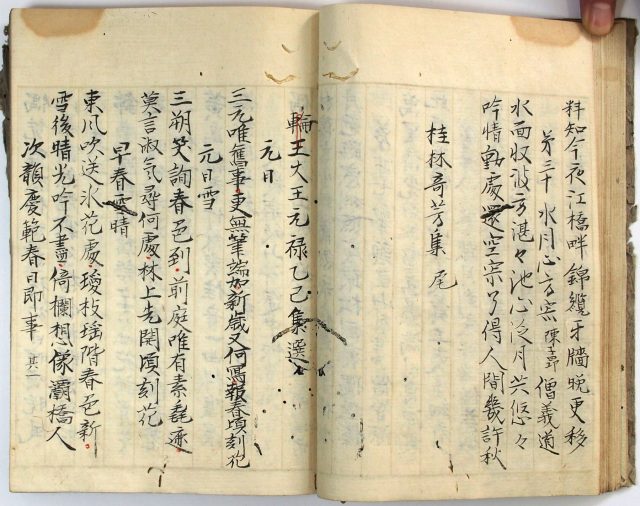 料知今夜江橋畔錦纜牙牆晩更移
第三十 水月心方寂 陳 僧義道
水面収波方湛々池心泛月共悠々
吟情動處還空宗了得人間幾許秋
桂林奇芳集 尾
輪王大王元禄乙己集選
元日
三元唯舊事更無筆端加新歳又何寫報春頃刻花
元日雪
三朔笑詢春色到前庭唯有素毳
莫言淑気尋何處林上先開頃刻花
早春雪晴
東风吹送氷花處瓊枝瑶階春色新
雪後晴光吟不盡倚欄想像灞橋人
次韻慶範春日即事 其一